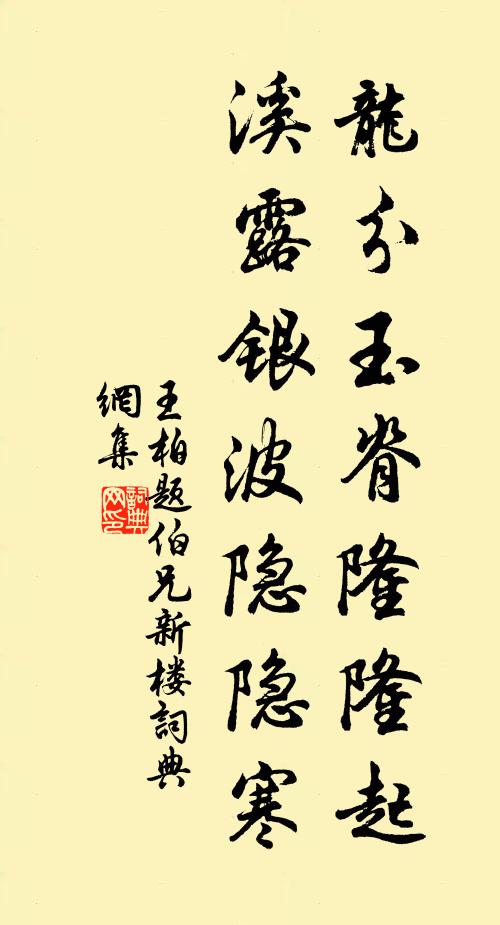 龍分玉脊隆隆起
溪露銀波隐隐寒
王柏题伯兄新楼詞典
網集
詞典
网印